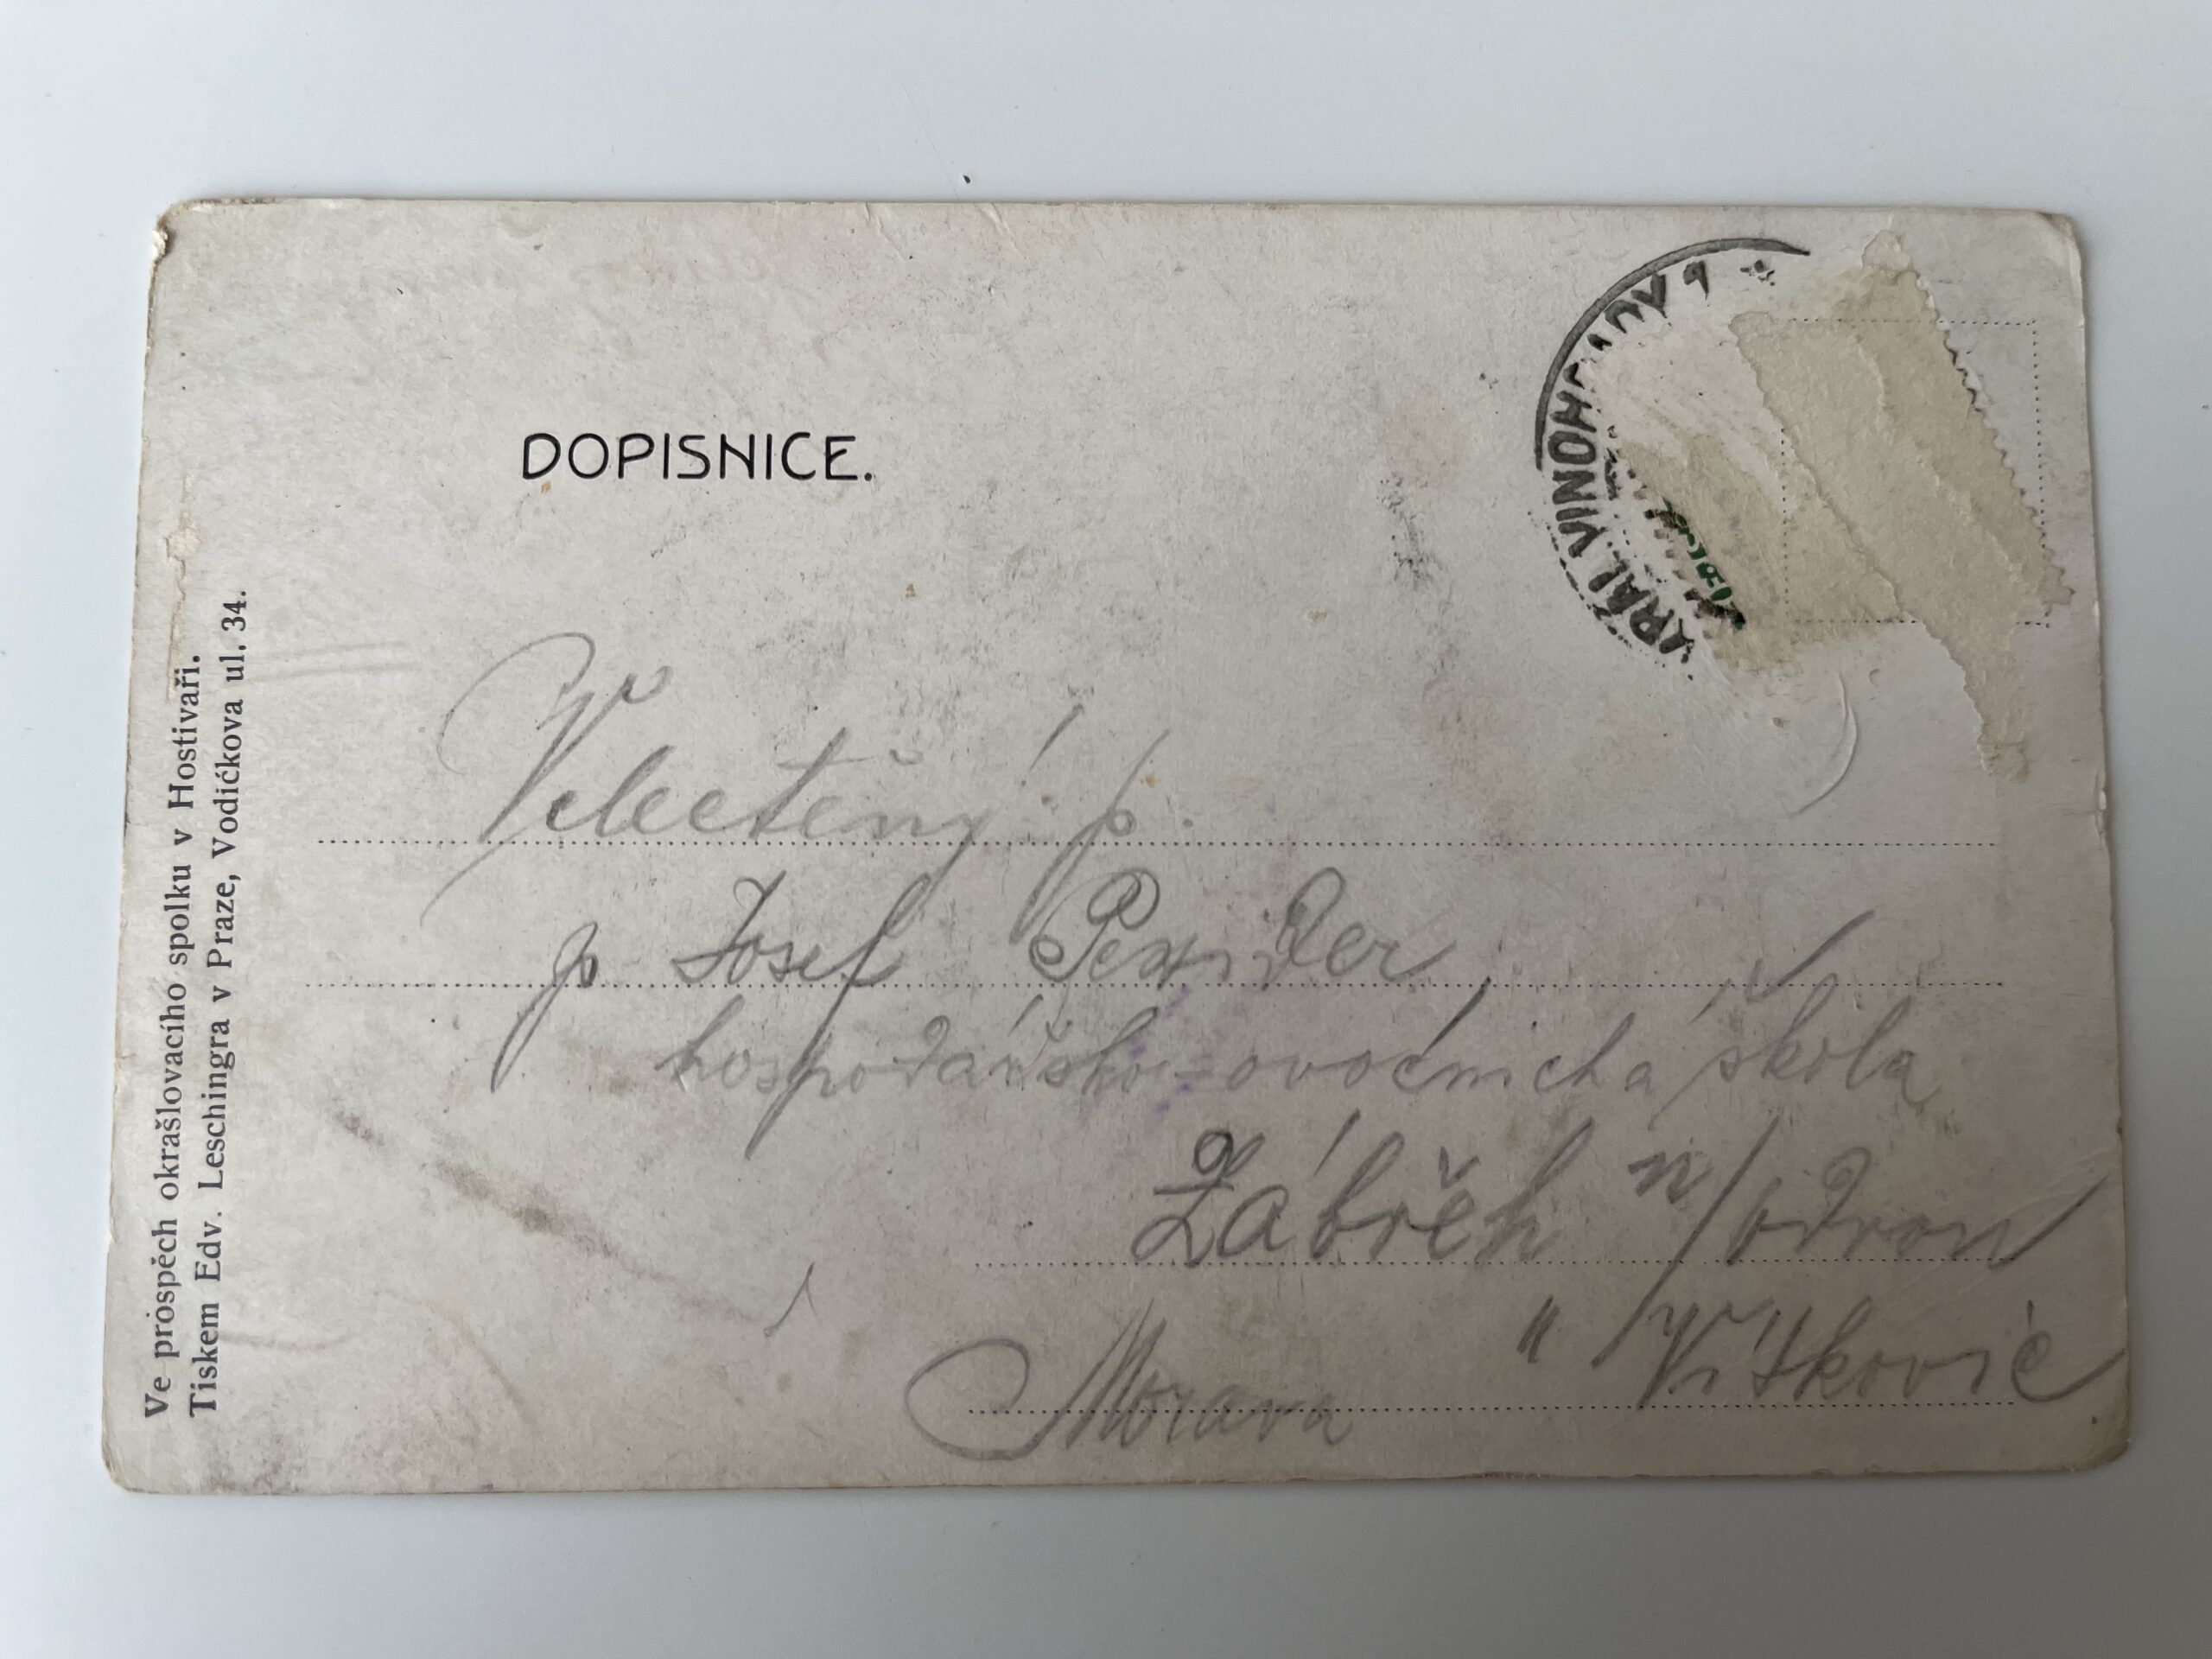 DOPISNICE.
KRÁL. VINOHRADY
Velectěný p.
p Josef
hospodářsko-ovocnická škola
Zábřeh n/odrou
" Vítkovic
Morava
Ve prospěch okrašlovacího spolku v Hostivaři.
Tiskem Edv. Leschingra v Praze, Vodičkova ul. 34.